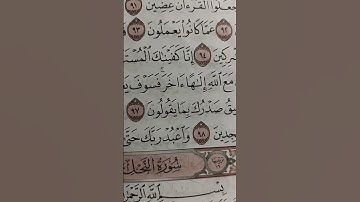 جعلوا القرءان عضين ٩١
٩٢ عما كانوا يعملون ٩٣
ركين ٩٤ إنا كفيناك المست
مع الله إلها ءاخر فسوف يع
يق صدرك بما يقولون ٩٧
جدين ٩٨ واعبد ربك حتى
سورة النحل
بسم الله الرحم